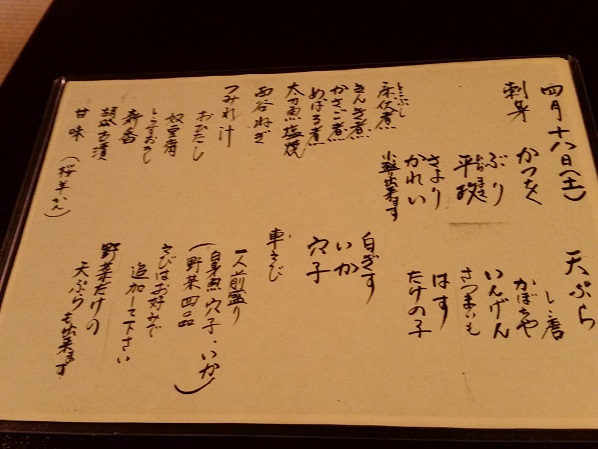 四月十八日(土)
刺身
かつおく
ぶり
平政
さより
かれい
小盛出来ます
とこぶし
床伏煮
きんき煮
かさご煮
めばる煮
太刀魚塩焼
西谷ねぎ
つみれ汁
おひたし
奴豆腐
とうふおろし
新香
胡瓜古漬
甘味(桜羊かん)
天ぷら
しし唐
かぼちゃ
いんげん
さつまいも
はす
たけの子
白ぎす
いか
穴子
車えび
一人前盛り
(白身魚、穴子、いか
野菜四品)
えびはお好みで
追加して下さい
野菜だけの
天ぷらも出来ます